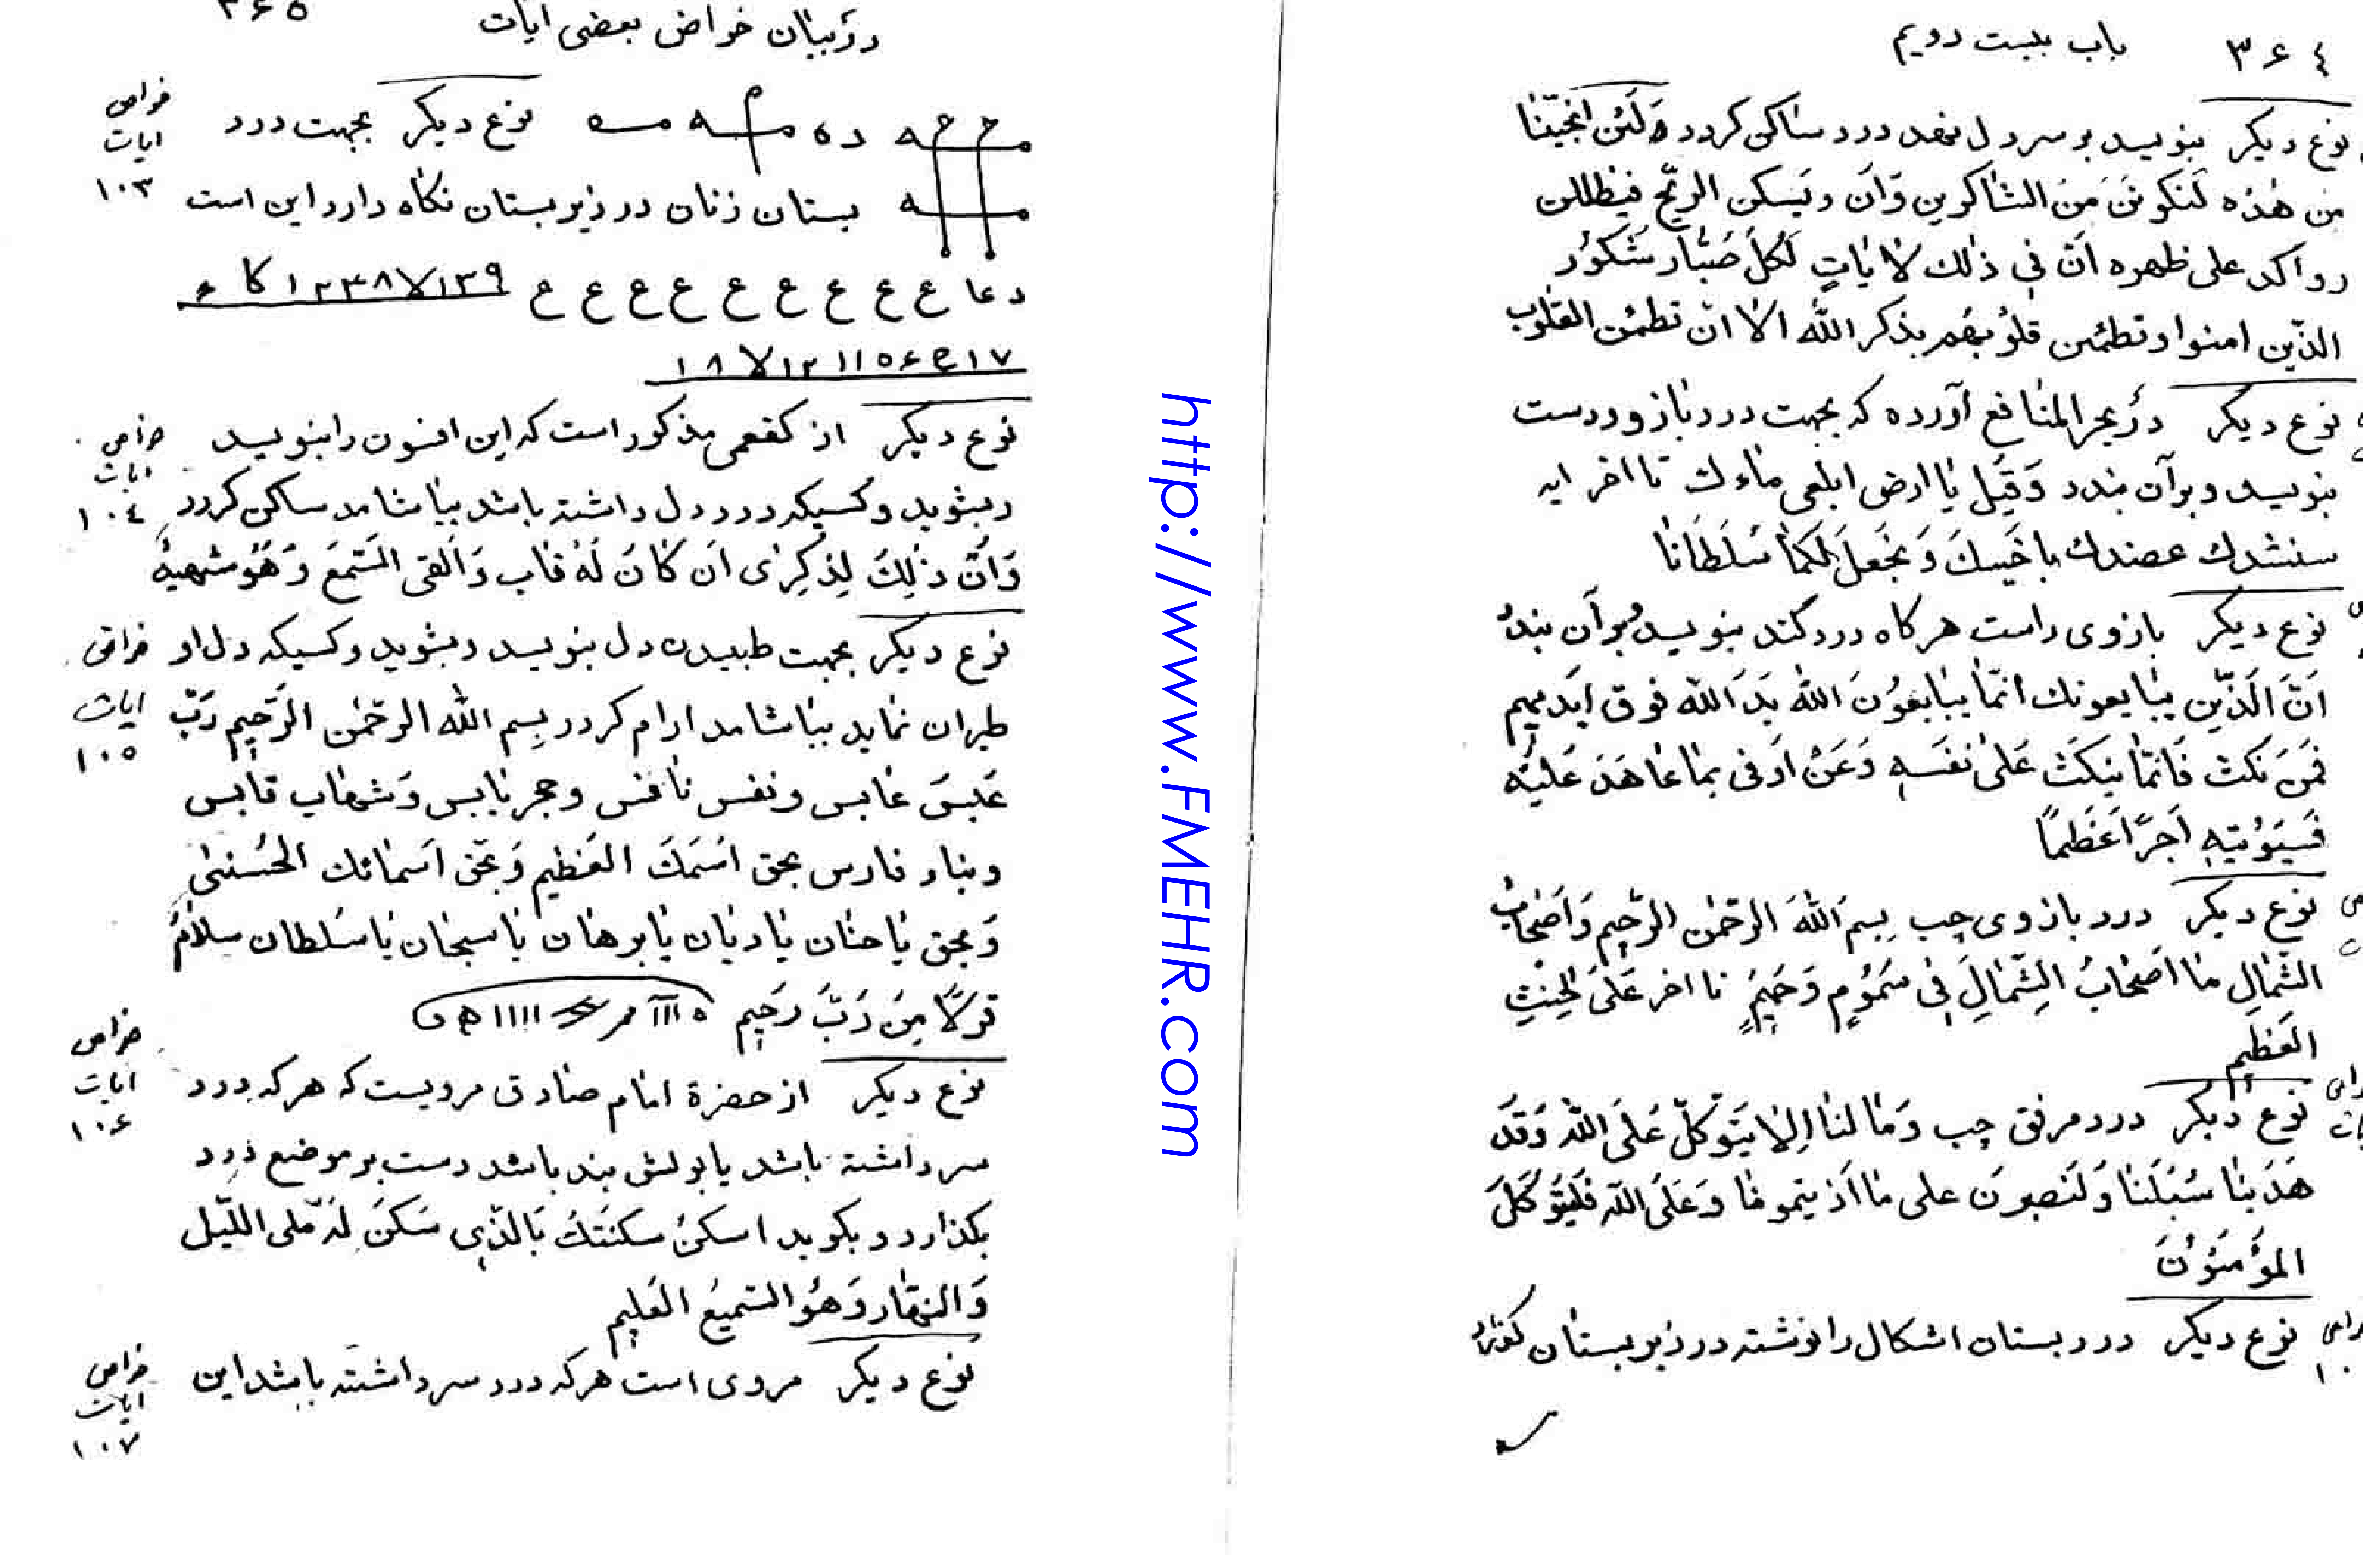 ۳۶٤ باب بیست دویم
نوع دیکر بنویسد بر سر دل نهد درد ساکن کردد وَلَئن انجَیتَنا
من هٰذه لَنَکونَنَ مَنَ الشاکرین وَان ویَسکن الریح فیظللن
رواکد علی ظهره انَ فی ذلك لاٰیاتٍ لَکُلَ صَبّار شَکوُر
الذّین امنوا وتطمئن قلوُبهُم بذکر اللّٰه الا ان تطمئن القلوب
نوع دیکر در بحر المنافع آورده که بجهت درد بازو ودست
بنویسد وبرآن بندد وَقیٖل یٰا ارض ابلعی ماءك تا اخر ایه
سنشدك عضدك باخیٖكَ وَنجَعلَ لکمٰا سُلطَانا
نوع دیکر بازوی راست هرکاه درد کند بنویسد وبرآن بندد
انَّ الَذّین یبٰایعونك انمّا یبٰایعوُنَ اللّٰه یَدَ اللّٰه فوق ایَدیهم
فمَن نکث فَانمّا ینکث عَلیٰ نفَسَهِ وَمَنْ اَوفی بمٰا عٰاهَدَ عَلیَه
فَسَیَوُتیهِ اَجرًا عَظیمًا
نوع دیکر درد بازوی چپ بِسم اللّٰه الرحمٰن الرحیم وَاَصحٰابُ
الشمٰالِ مٰا اَصحٰابُ الشِمٰالِ فی سَمُومٍ وَحَمیمٍ تا اخر عَلیَ الحِنثِ
العَظیمِ
نوع دیکر درد مرفق چپ وَمٰا لنٰا اِلا یَتَوکلّ عَلیَ اللّٰه وَقَدَ
هَدَینٰا سُبُلَنٰا وَلَنَصبرنَ علی مٰا اَذیتمونٰا وَعَلَی اللّٰه فَلیَتَوکَلَ
المؤمنُونَ
نوع دیکر درد بستان اشکال را نوشته در زیر بستان
در بیان خواص بعضی ایات ۳۶۵
نوع دیکر بجهت درد
خواص ایات ۱۰۳
بستان زنان در زیر بستان نکاه دارد این است
دعا ع ع ع ع ع ع ع ع ع
نوع دیکر از کفعمی مذکور است که این افسون را بنویسد
خواص ایات ۱۰٤
وبشوید وکسیکه درد دل داشته باشد بیاشامد ساکن کردد
وَانَ ذٰلِكَ لِذکِریٰ اَن کٰانَ لَهُ قٰلب وَالقی السَمَعَ وَهُو شهیدٌ
نوع دیکر بجهت طبیدن دل بنویسد وبشوید وکسیکه دل او
خواص ایات ۱۰۵
طبران نماید بیاشامد ارام کردد بِسم اللّٰه الرحمٰن الرَحیم رَبّ
عَبسَ عٰابس ونفس نٰافس وحجر یٰابس وَشهٰاب قابس
وبنار فارس بحق اسَمَكَ العَظیم وَبحَق اَسَمائك الحُسنیٰ
وَبحق یٰا حنٰان یٰا دیٰان یٰا برهٰان یٰا سبحٰان یٰا سُلطان سلاٰم
قولاً مِنَ رَبَّ رَحیم
نوع دیکر از حضرة امٰام صٰادق مرویست که هرکه درد
خواص ایات ۱۰۶
سر داشته باشد یا بولش بند باشد دست بر موضع درد
بکذارد وبکوید اسکنُ سکنتَكُ بَالذّی سَکنَ لهَ مٰا فی اللّیل
وَالنهّار وَهوُ السّمیعُ العَلیم
نوع دیکر مروی است هرکه درد سر داشته باشد این
خواص ایات ۱۰۷
http://www.FMEHR.com